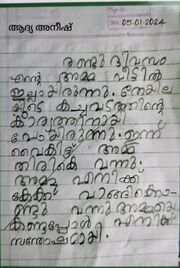 ആദ്യ അനീഷ്
05-01-2024
രണ്ടു ദിവസം
എന്റെ അമ്മ വീട്ടിൽ
ഇല്ലായിരുന്നു.
യുടെ കച്ചവടത്തിന്റെ
കാര്യത്തിനായി
പോയിരുന്നു. ഇന്ന്
വൈകിട്ട് അമ്മ
തിരികെ വന്നു.
അമ്മ എനിക്ക്
കേക്ക് വാങ്ങിക്കൊ
ണ്ടു വന്നു. അമ്മയെ
കണ്ടപ്പോൾ എനിക്ക്
സന്തോഷമായി.